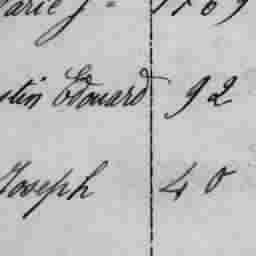 Marie J= 1789
stin Edouard 92
Joseph 40